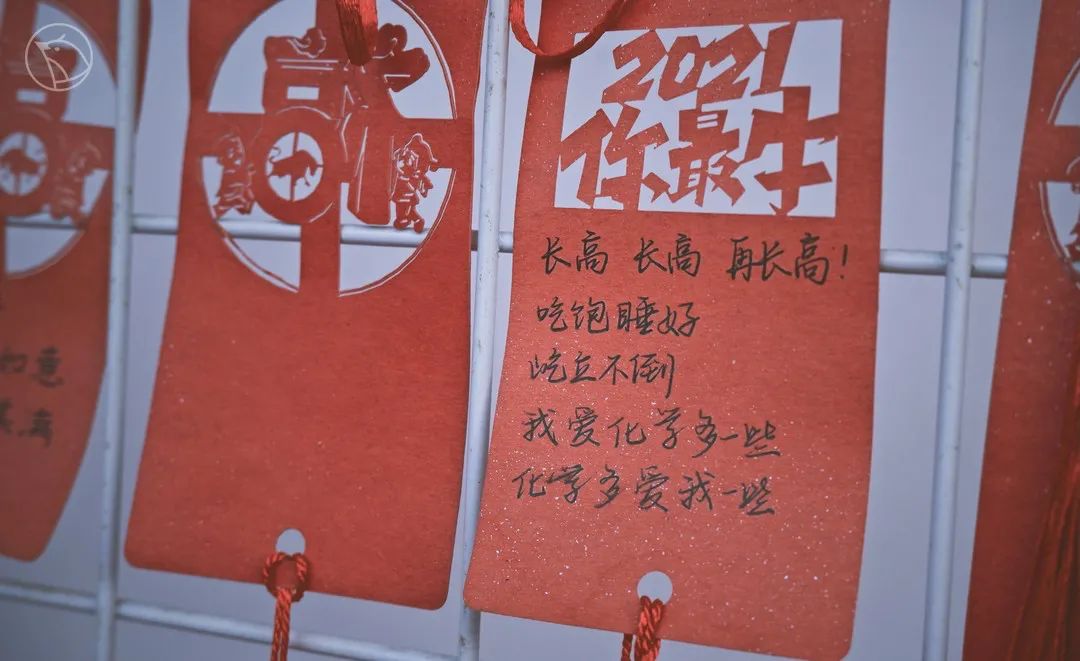 如意
2021
你最牛
长高 长高 再长高！
吃饱睡好
屹立不倒
我爱化学多一些
化学多爱我一些